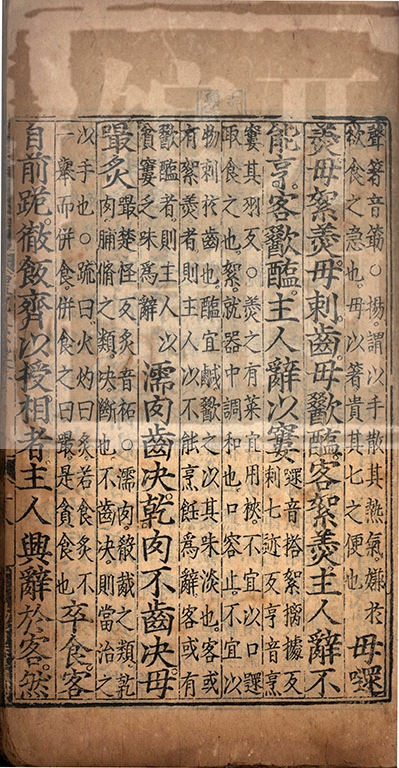 聲箸音筯○揚謂以手散其熱氣嫌於
欲食之急也毋以箸貴其匕之便也
毋嚃
羹毋絮羹毋刺齒毋歠醢客絮羹主人辭不
能亨客歠醢主人辭以窶
嚃音榙絮摛據反
刺七迹反亨音烹
窶其羽反○羹之有菜宜用梜不宜以口嚃
取食之也絮就器中調和也口容止不宜以
物刺於齒也醢宜鹹歠之以其味淡也客或
有絮羹者則主人以不能烹飪爲辭客或有
歠醢者則主人以
貧窶乏味爲辭
濡肉齒决乾肉不齒决毋
嘬炙
嘬楚怪反炙音柘○濡肉殽胾之類乾
肉脯脩之類决斷也不齒决則當治之
以手也○䟽曰火灼曰炙若食炙不
一舉而併食併食之曰嘬是貪食也
卒食客
自前跪徹飯齊以授相者主人興辭於客然